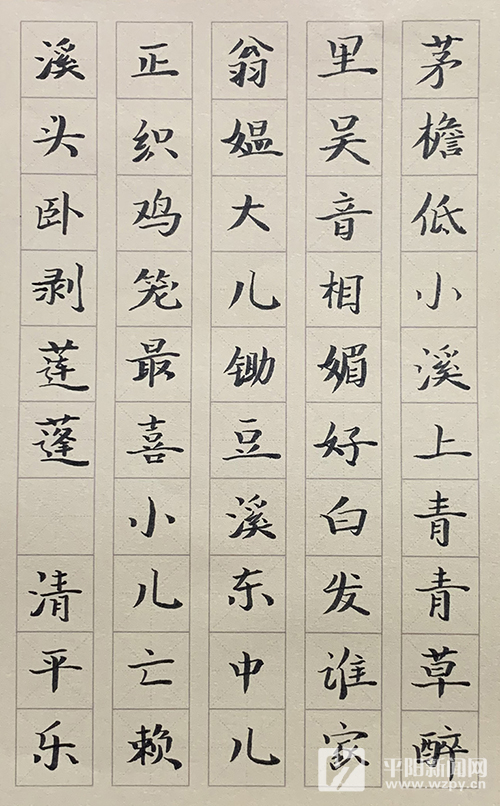 茅檐低小溪上青青草醉
里吴音相媚好白发谁家
翁媪大儿锄豆溪东中儿
正织鸡笼最喜小儿亡赖
溪头卧剥莲蓬 清平乐
平阳新闻网
www.wzpy.cn